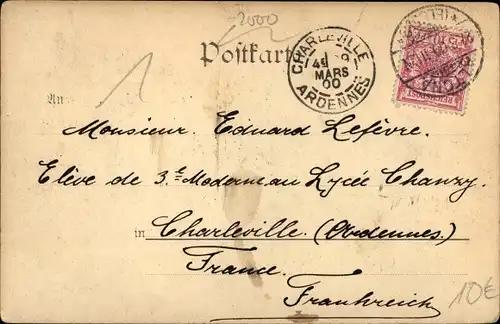 2000
Postkarte
CHARLEVILLE
MARS
00
ARDENNES
REICHSPOST
1
An
Monsieur Eduard Lefèvre.
Elève de 3.e Moderne au Lycée Chanzy.
in Charleville. (Ardennes.)
France.
Frankreich
10€